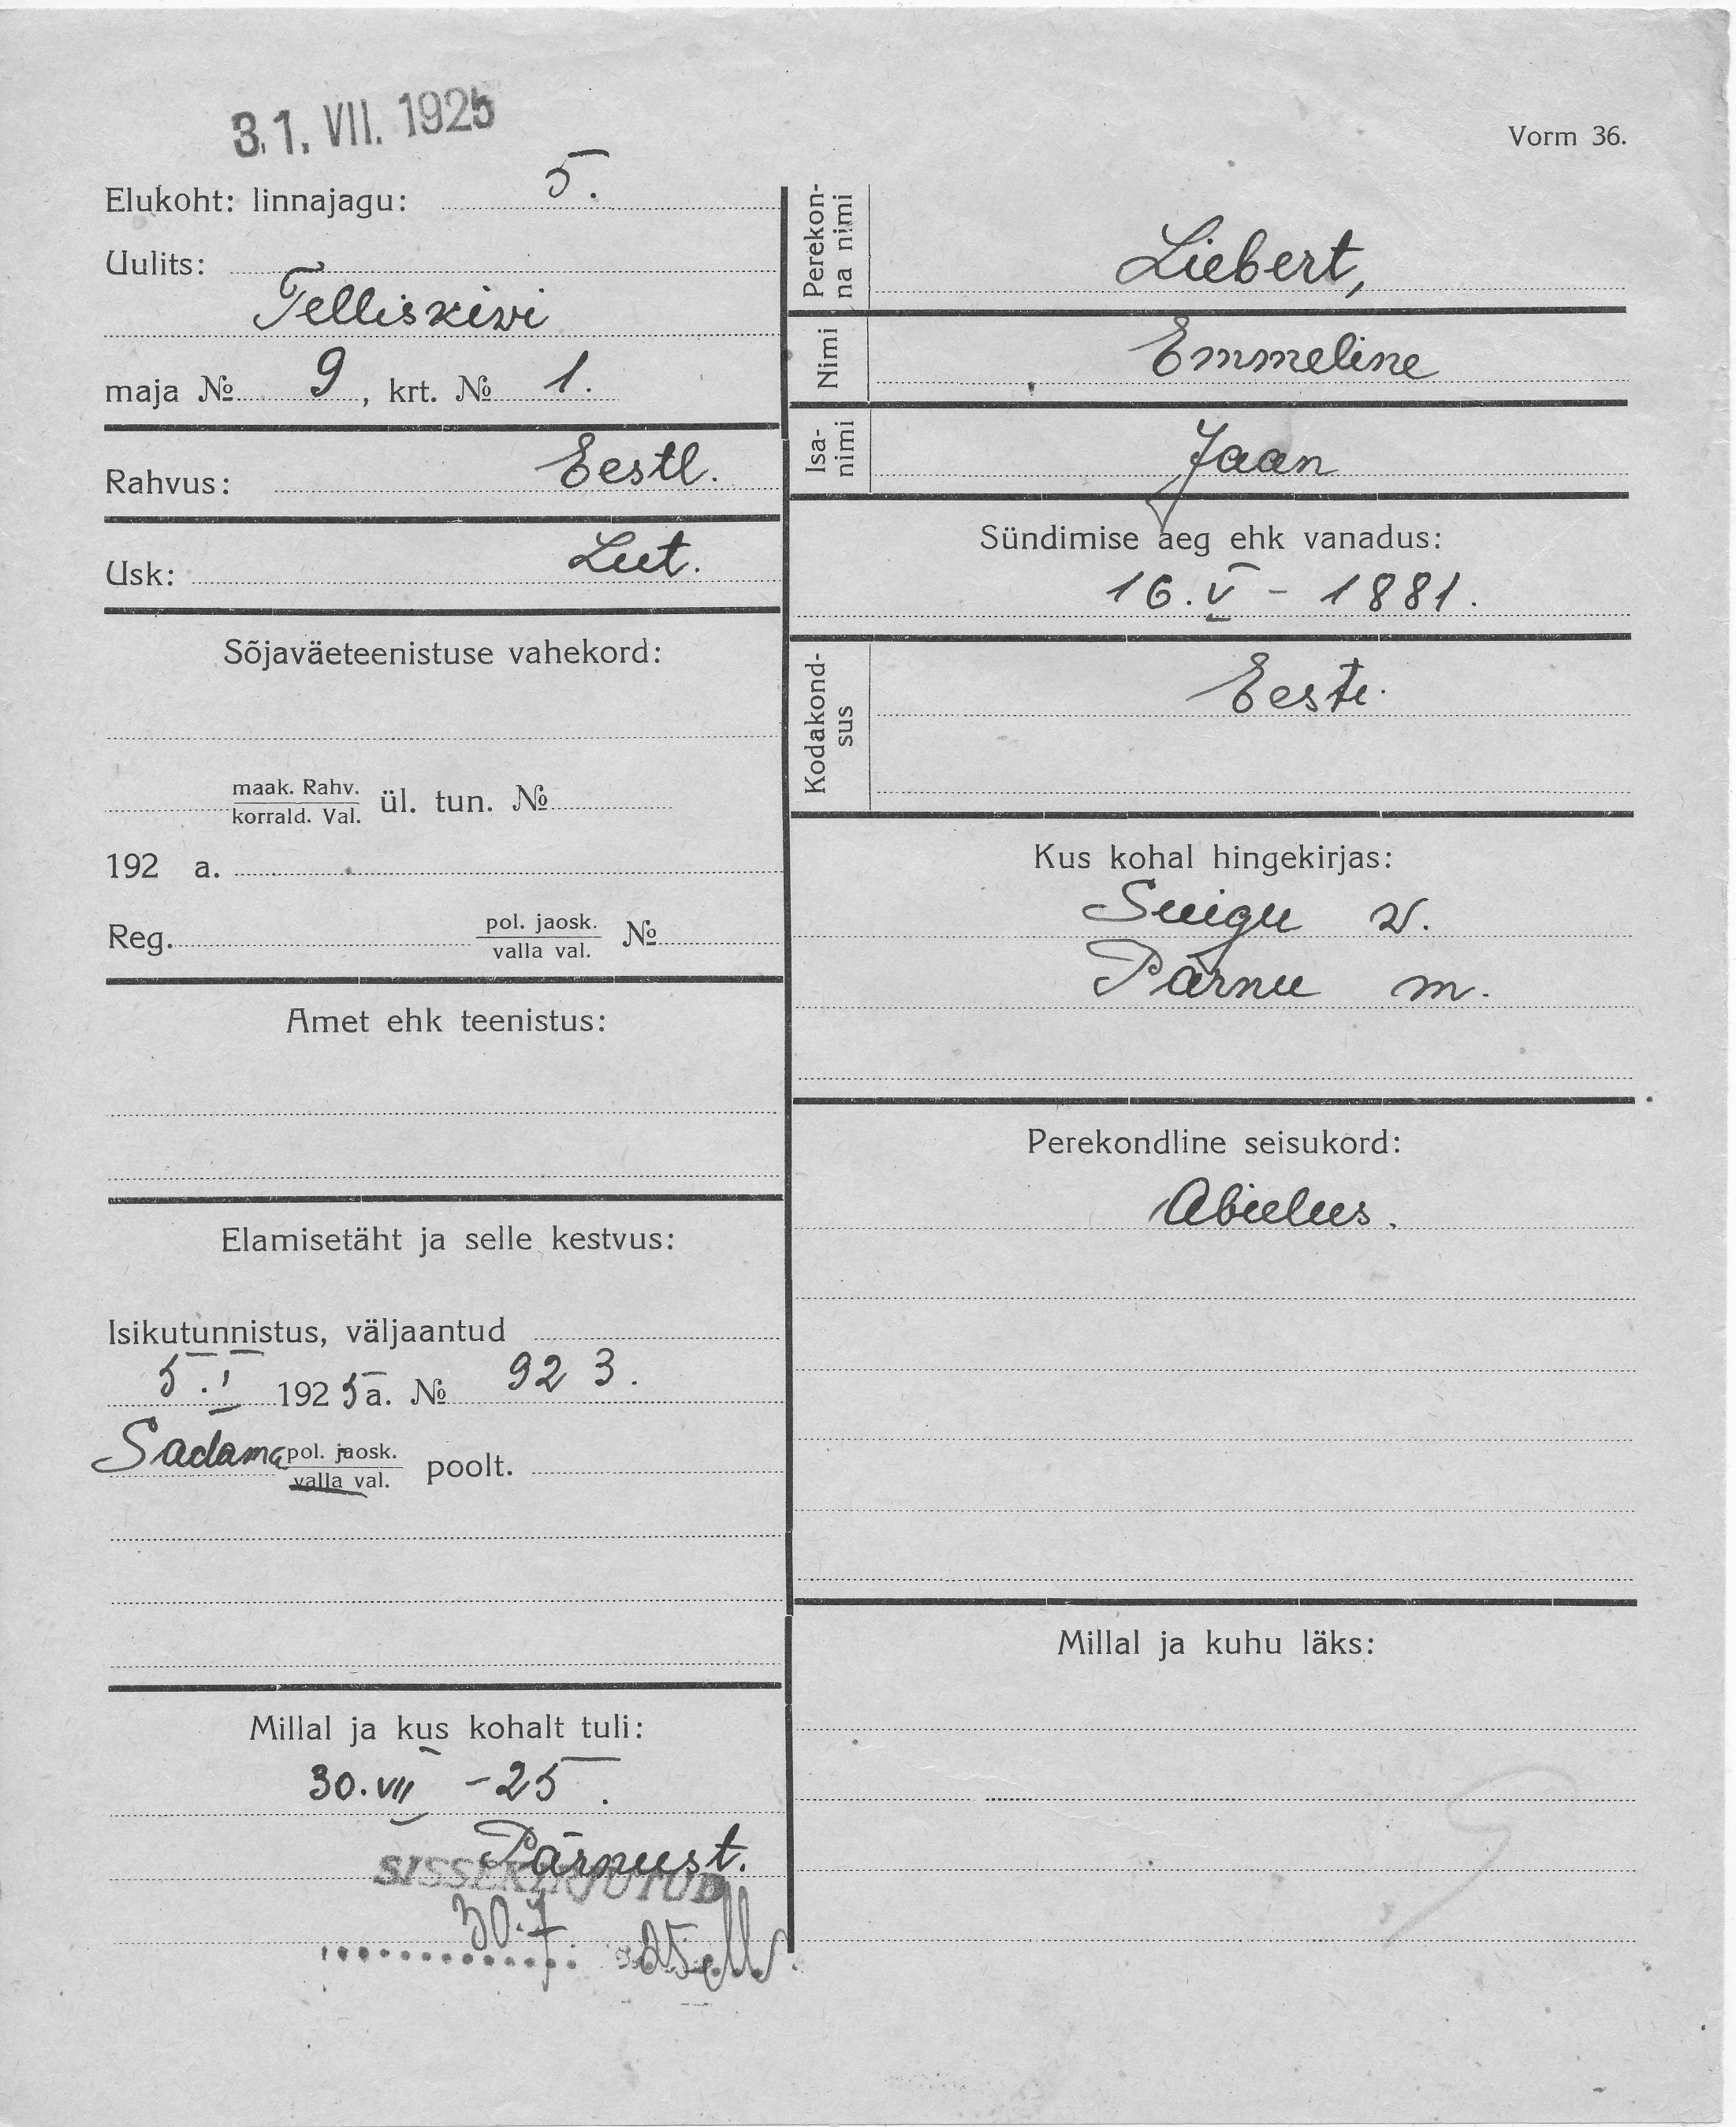 31. VII. 1925
Vorm 36.
Elukoht: linnajagu: 5.
Uulits:
Telliskiwi
maja № 9, krt. № 1.
Rahvus: Eestl.
Usk: Lut.
Sõjaväeteenistuse vahekord:
maak. Rahv.
korrald. Val. ül. tun. №
192 a.
Reg. pol. jaosk.
valla val. №
Amet ehk teenistus:
Elamisetäht ja selle kestvus:
Isikutunnistus, väljaantud
5. I 1925 a. № 923.
Sadama pol. jaosk.
valla val. poolt.
Millal ja kus kohalt tuli:
30. VII - 25.
Pärnust.
SISSEKIRJUTUD
30.7 25
Perekon-
na nimi
Liebert,
Nimi
Emmeline
Isa-
nimi
Jaan
Sündimise aeg ehk vanadus:
16. V - 1881.
Kodakond-
sus
Eesti.
Kus kohal hingekirjas:
Suigu w.
Pärnu m.
Perekondline seisukord:
Abielus.
Millal ja kuhu läks: